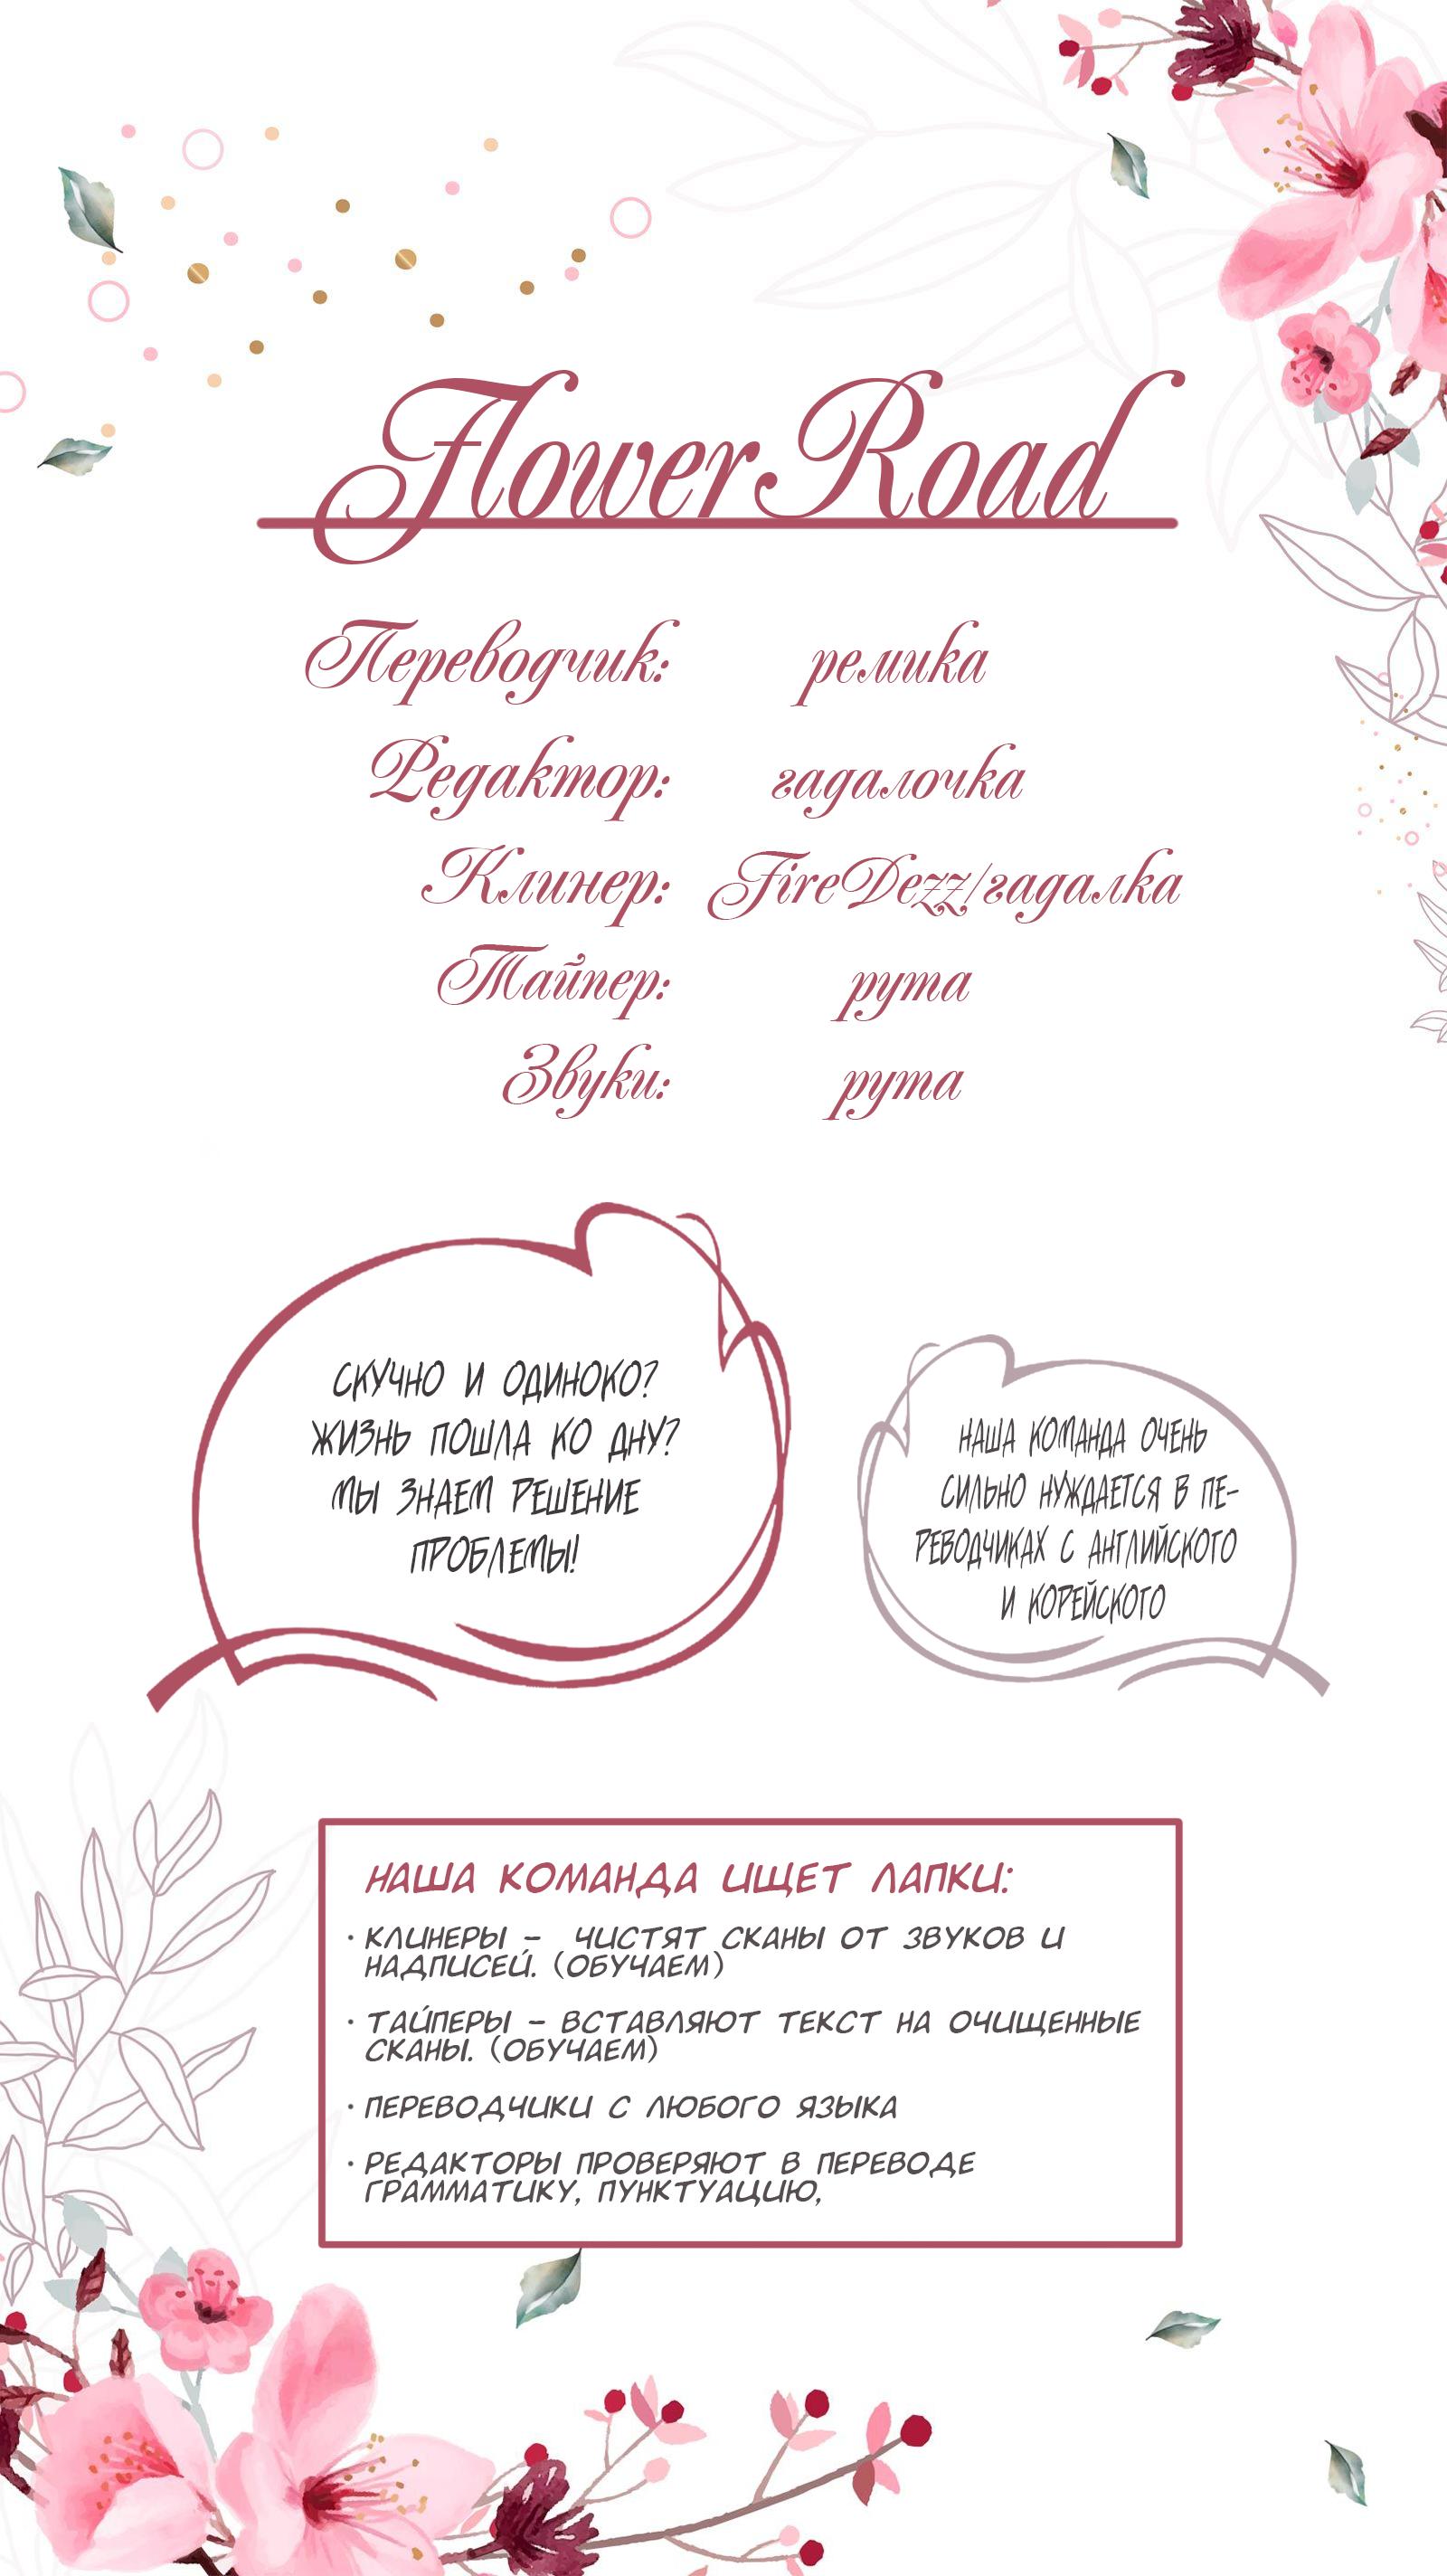 FlowerRoad
Переводчик: ремика
Редактор: гадалочка
Клинер: FireDezz/гадалка
Тайпер: рута
Звуки: рута
СКУЧНО И ОДИНОКО?
ЖИЗНЬ ПОШЛА КО ДНУ?
МЫ ЗНАЕМ РЕШЕНИЕ
ПРОБЛЕМЫ!
НАША КОМАНДА ОЧЕНЬ
СИЛЬНО НУЖДАЕТСЯ В ПЕ-
РЕВОДЧИКАХ С АНГЛИЙСКОГО
И КОРЕЙСКОГО
НАША КОМАНДА ИЩЕТ ЛАПКИ:
· КЛИНЕРЫ - ЧИСТЯТ СКАНЫ ОТ ЗВУКОВ И
НАДПИСЕЙ. (ОБУЧАЕМ)
· ТАЙПЕРЫ - ВСТАВЛЯЮТ ТЕКСТ НА ОЧИЩЕННЫЕ
СКАНЫ. (ОБУЧАЕМ)
· ПЕРЕВОДЧИКИ С ЛЮБОГО ЯЗЫКА
· РЕДАКТОРЫ ПРОВЕРЯЮТ В ПЕРЕВОДЕ
ГРАММАТИКУ, ПУНКТУАЦИЮ,